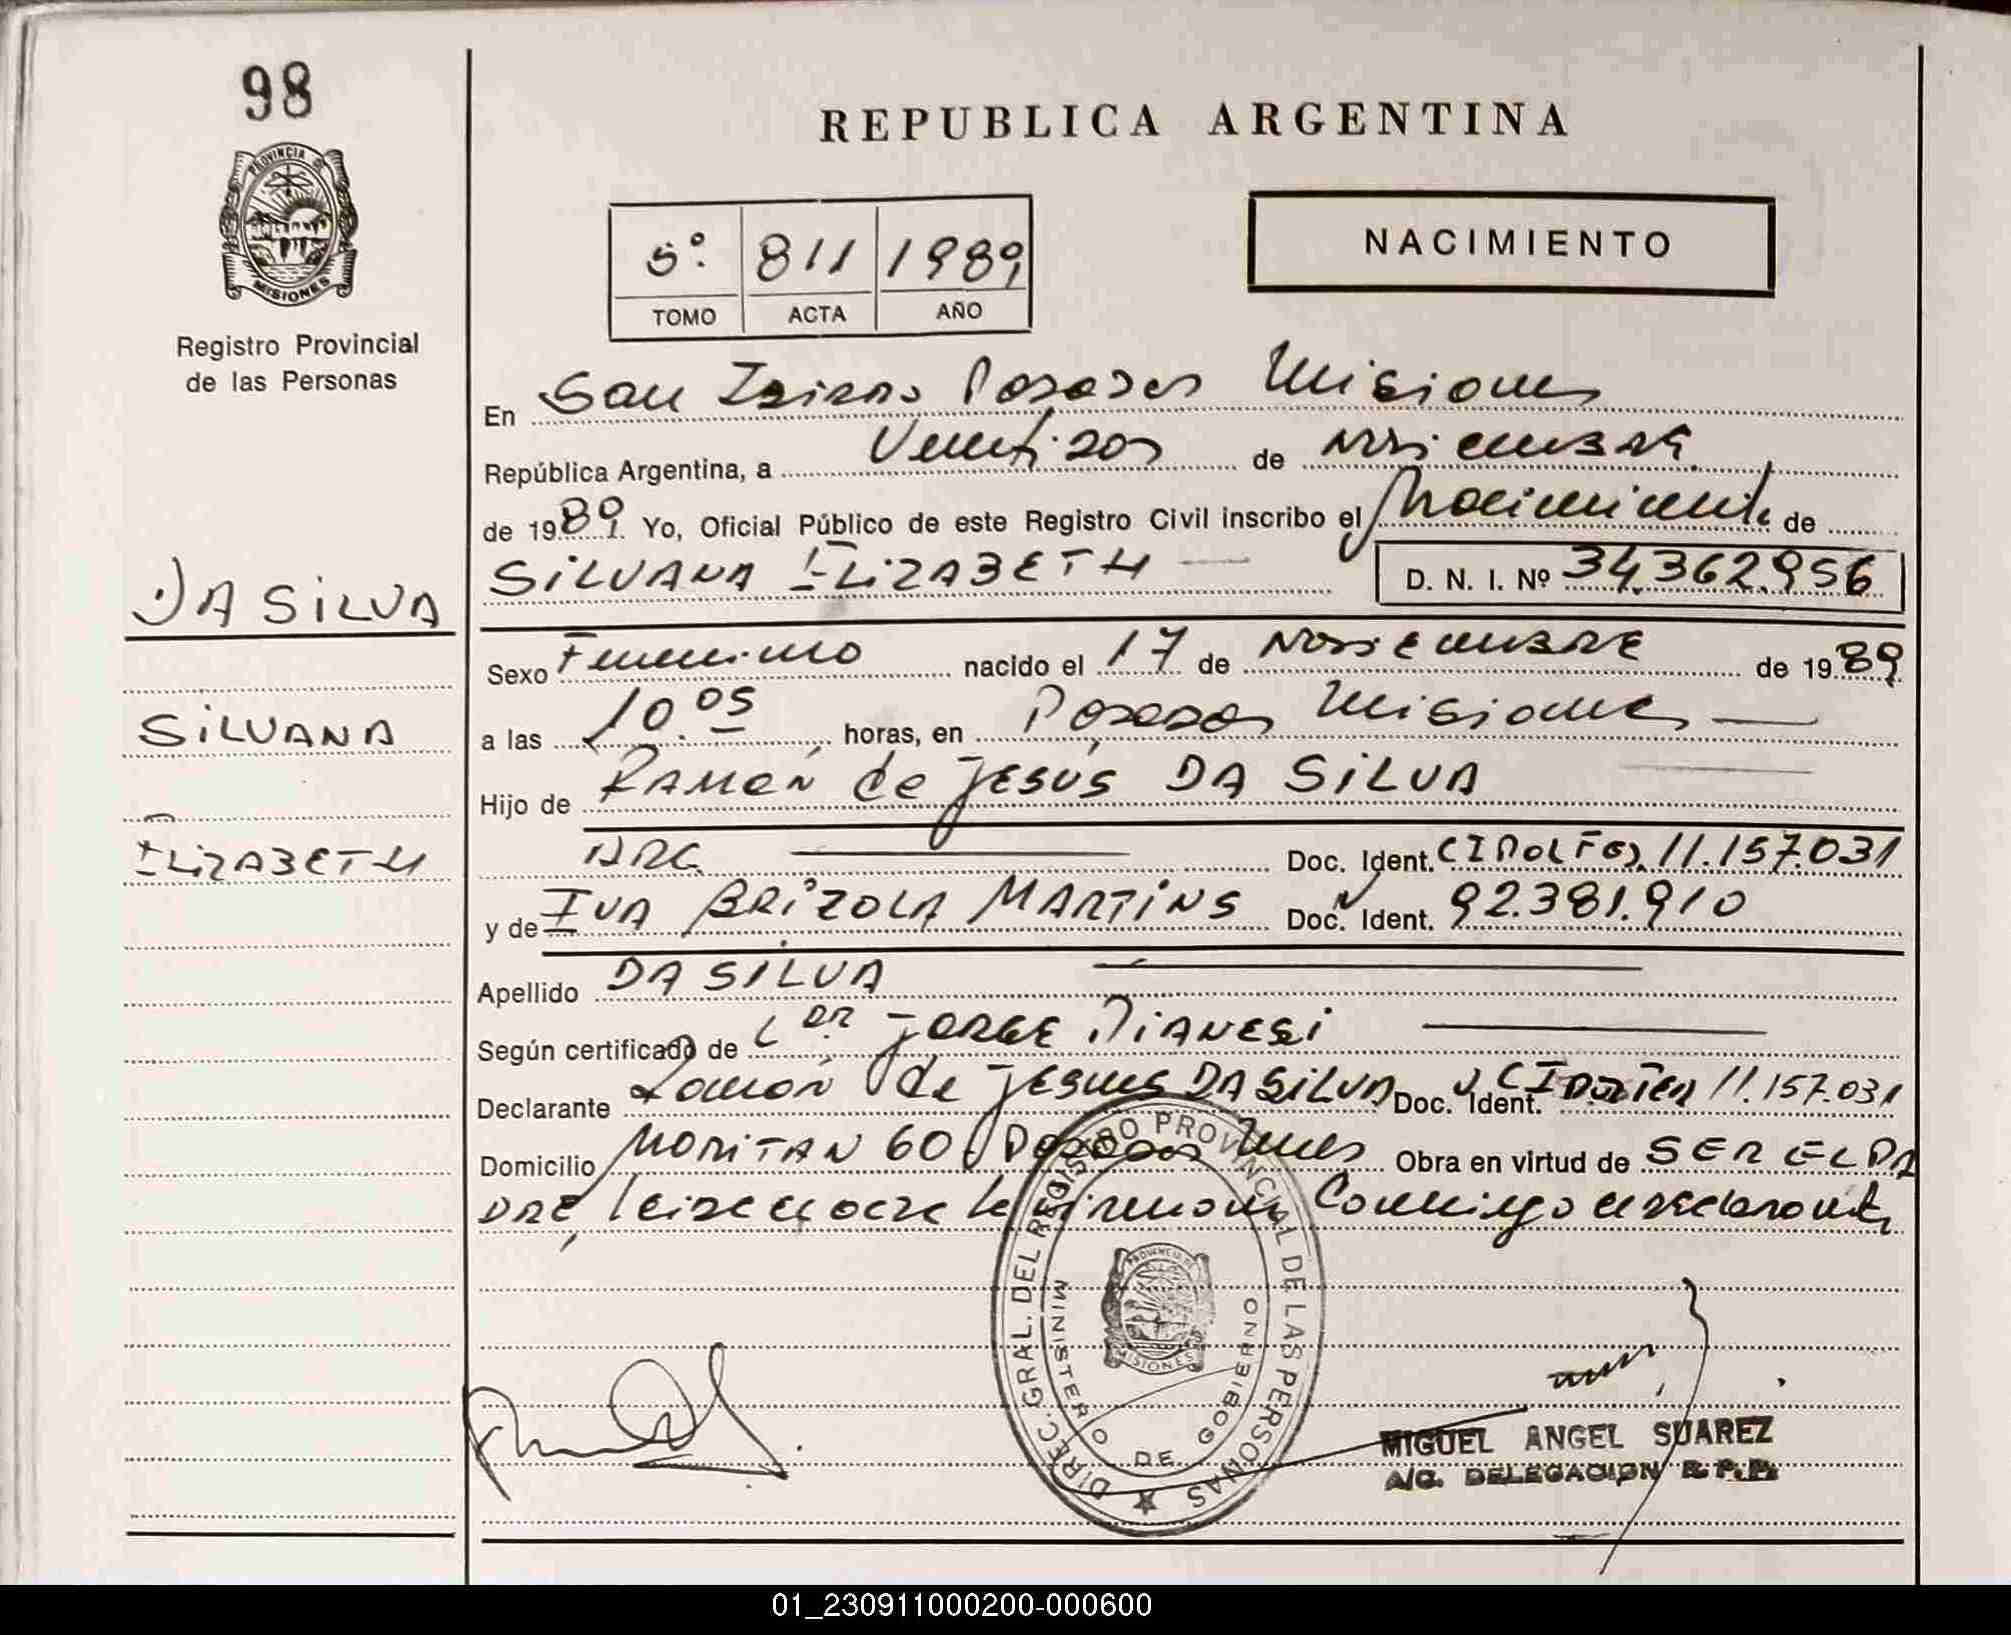 98
PROVINCIA DE
MISIONES
Registro Provincial
de las Personas
DA SILVA
SILVANA
ELIZABETH
REPUBLICA ARGENTINA
5º 811 1989
TOMO ACTA AÑO
NACIMIENTO
En San Isidro Posadas Misiones
República Argentina, a Veintidos de Noviembre
de 1989. Yo, Oficial Público de este Registro Civil inscribo el Nacimiento de
SILVANA ELIZABETH D. N. I. Nº 34.362.956
Sexo Femenino nacido el 17 de Noviembre de 1989
a las 10.05 horas, en Posadas Misiones
Hijo de Ramón de JESÚS DA SILVA
ARG. Doc. Ident. CI POL FED. 11.157.031
y de IVA BRIZOLA MARTINS Doc. Ident. 92.381.910
Apellido DA SILVA
Según certificado de JORGE DIANESI
Declarante Ramón de JESUS DA SILVA Doc. Ident. CI 11.157.031
Domicilio 60 Posadas Mnes Obra en virtud de SER EL PA
DRE firman Conmigo el declarante
DIREC. GRAL. DEL REGISTRO PROVINCIAL DE LAS PERSONAS
MINISTERIO DE GOBIERNO
MISIONES
MIGUEL ANGEL SUAREZ
A/C. DELEGACION R.P.P.
01_230911000200-000600